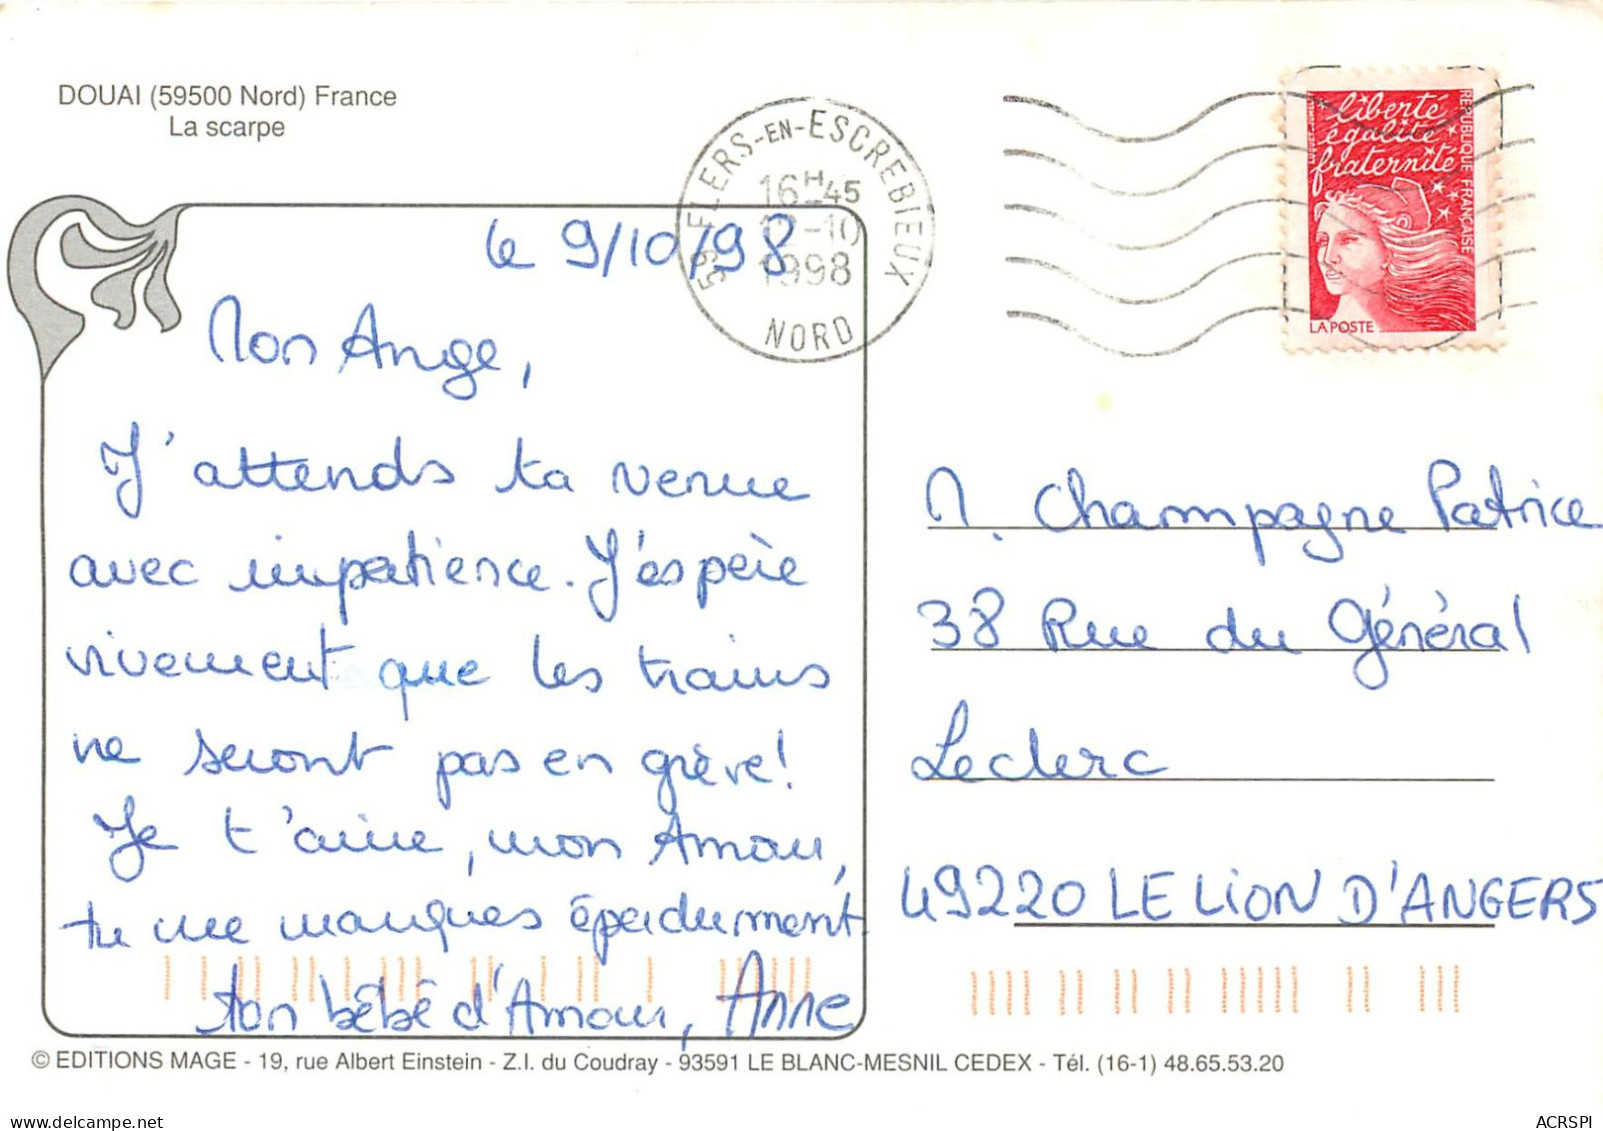 DOUAI (59500 Nord) France
La scarpe
59 FLERS-EN-ESCREBIEUX
16H45
12-10
1998
NORD
liberté
égalité
fraternité
RÉPUBLIQUE FRANÇAISE
LA POSTE
le 9/10/98
Mon Ange,
J'attends ta venue
avec impatience. J'espère
vivement que les trains
ne seront pas en grève!
Je t'aime, mon Amour,
tu me manques éperdument
ton bébé d'Amour, Anne
M. Champagne Patrice
38 Rue du Général
Leclerc
49220 LE LION D'ANGERS
© EDITIONS MAGE - 19, rue Albert Einstein - Z.I. du Coudray - 93591 LE BLANC-MESNIL CEDEX - Tél. (16-1) 48.65.53.20
delcampe.net
ACRSPI